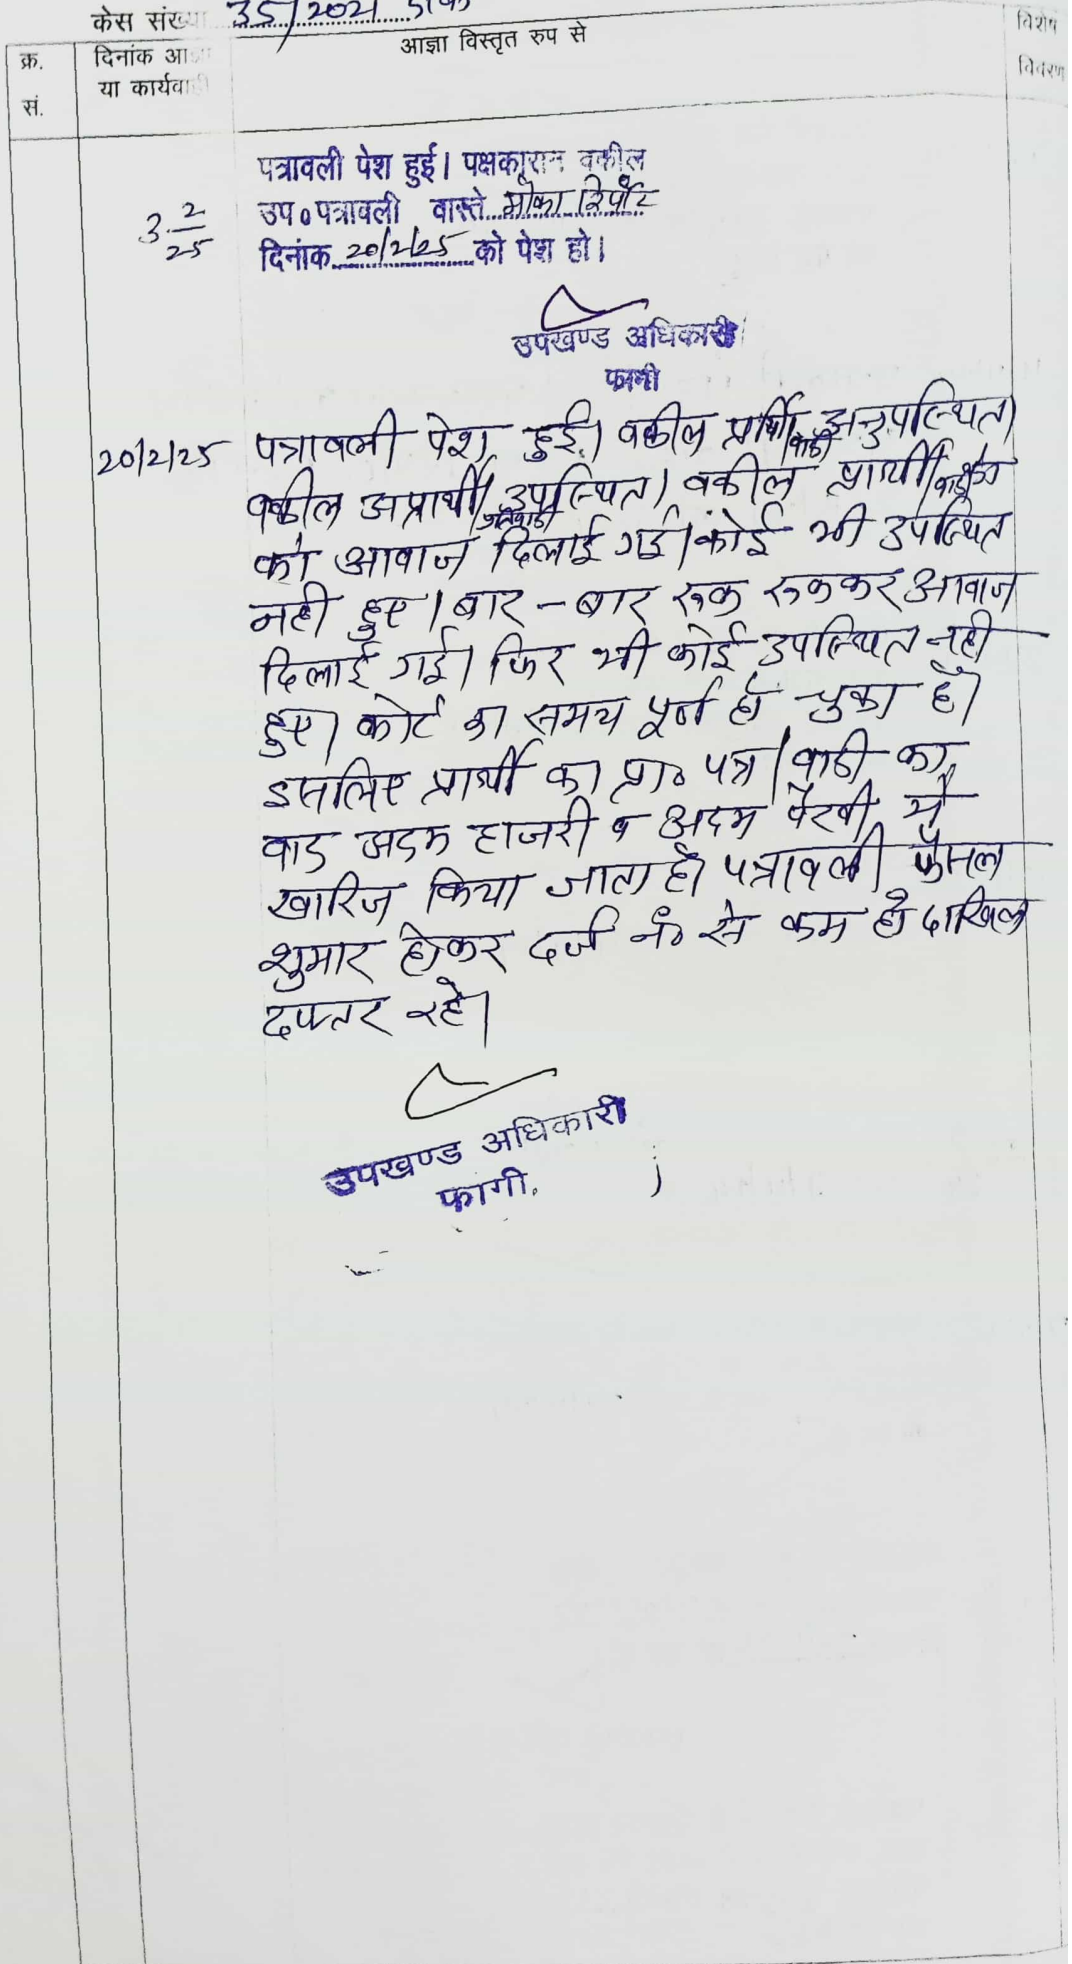 केस संख्या 35/2021
क्र. सं.
दिनांक आज्ञा या कार्यवाही
आज्ञा विस्तृत रुप से
विशेष विवरण
3.2/25
पत्रावली पेश हुई। पक्षकारान वकील
उप० पत्रावली वास्ते मौका रिर्पोट
दिनांक 20/2/25 को पेश हो।
उपखण्ड अधिकारी
फागी
20/2/25
पत्रावली पेश हुई। वकील प्रार्थी/वादी अनुपस्थित।
वकील अप्रार्थी/प्रतिवादी उपस्थित। वकील प्रार्थी/वादी
को आवाज दिलाई गई। कोई भी उपस्थित
नही हुए। बार-बार रूक रूककर आवाज
दिलाई गई। फिर भी कोई उपस्थित नही
हुए। कोर्ट का समय पूर्ण हो चुका है।
इसलिए प्रार्थी का प्रा० पत्र/वादी का
वाद अदम हाजरी व अदम पैरवी में
खारिज किया जाता है। पत्रावली फैसल
शुमार होकर दर्ज नं० से कम हो दाखिल
दफ्तर रहे।
उपखण्ड अधिकारी
फागी.